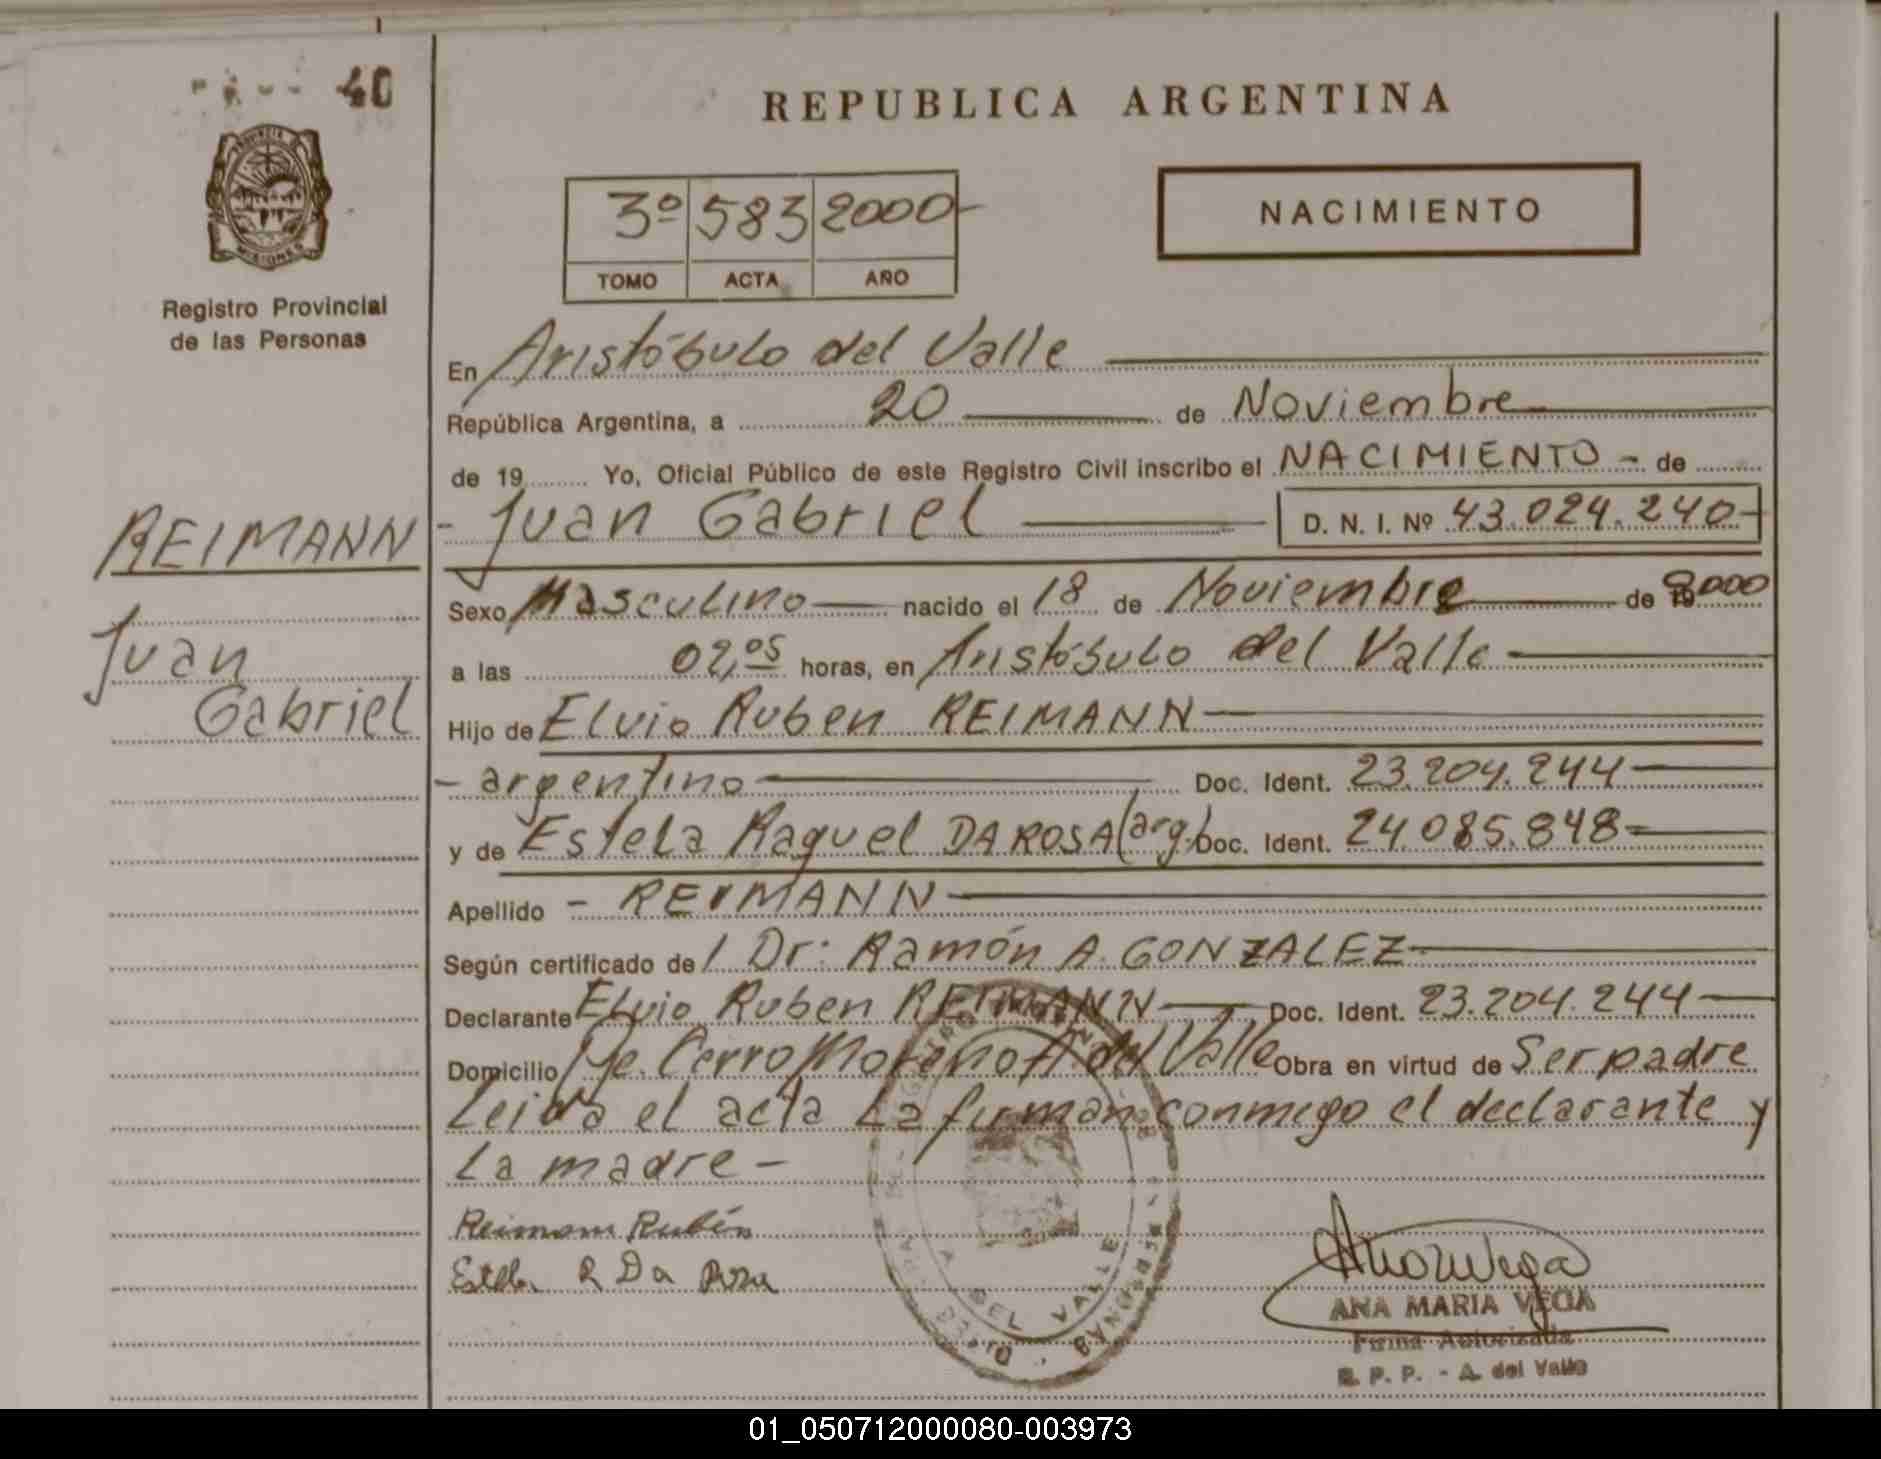 40
PROVINCIA DE
MISIONES
Registro Provincial
de las Personas
REIMANN
Juan
Gabriel
REPUBLICA ARGENTINA
3º 583 2000-
TOMO ACTA AÑO
NACIMIENTO
En Aristóbulo del Valle
República Argentina, a 20 de Noviembre
de 19 Yo, Oficial Público de este Registro Civil inscribo el NACIMIENTO - de
- Juan Gabriel D. N. I. Nº 43.024.240-
Sexo Masculino nacido el 18 de Noviembre de 2000
a las 02,05 horas, en Aristóbulo del Valle
Hijo de Elvio Ruben REIMANN
- argentino Doc. Ident. 23.204.244
y de Estela Raquel DA ROSA (arg.) Doc. Ident. 24.085.848
Apellido - REIMANN
Según certificado de Dr: Ramón A. GONZALEZ
Declarante Elvio Ruben REIMANN Doc. Ident. 23.204.244
Domicilio Pje. Cerro Moreno A. del Valle Obra en virtud de Ser padre
Leida el acta La firman conmigo el declarante y
La madre -
Reimann Rubén
Estela R Da Rosa
A DEL VALLE
ANA MARIA VEGA
Firma Autorizada
R. P. P. - A. del Valle
01_050712000080-003973